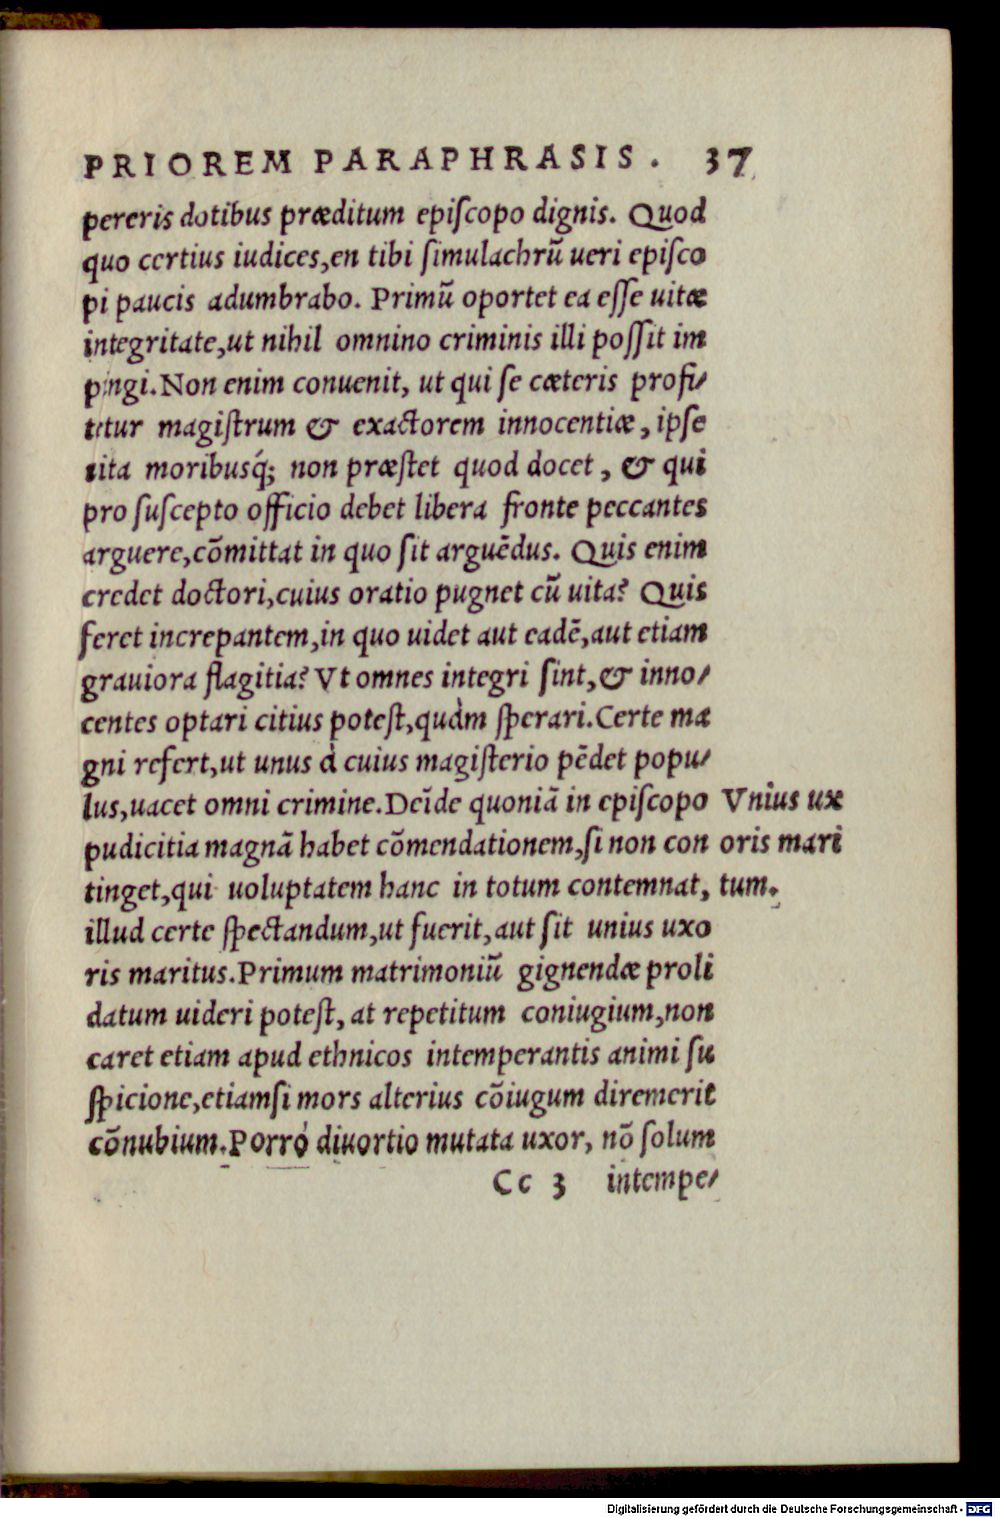 PRIOREM PARAPHRASIS. 37
pereris dotibus præditum epiſcopo dignis. Quod
quo certius iudices,en tibi ſimulachrū ueri epiſco
pi paucis adumbrabo. Primū oportet ea eſſe uitæ
integritate,ut nihil omnino criminis illi poſſit im
pingi.Non enim conuenit, ut qui ſe cæteris profi⸗
tetur magiſtrum & exactorem innocentiæ, ipſe
uita moribusq́; non præſtet quod docet, & qui
pro ſuſcepto officio debet libera fronte peccantes
arguere,cōmittat in quo ſit arguēdus. Quis enim
credet doctori,cuius oratio pugnet cū uita? Quis
feret increpantem,in quo uidet aut eadē,aut etiam
grauiora flagitia? Vt omnes integri ſint,& inno⸗
centes optari citius poteſt,quàm ſperari.Certe ma
gni refert,ut unus à cuius magiſterio pēdet popu⸗
lus,uacet omni crimine.Deīde quoniā in epiſcopo
pudicitia magnā habet cōmendationem,ſi non con
tinget,qui uoluptatem hanc in totum contemnat,
illud certe ſpectandum,ut fuerit,aut ſit unius uxo
ris maritus.Primum matrimoniū gignendæ proli
datum uideri poteſt, at repetitum coniugium,non
caret etiam apud ethnicos intemperantis animi ſu
ſpicione,etiamſi mors alterius cōiugum diremerit
cōnubium.Porrò diuortio mutata uxor, nō ſolum
Cc 3 intempe⸗
Vnius ux
oris mari
tum.
Digitalisierung gefördert durch die Deutsche Forschungsgemeinschaft - DFG